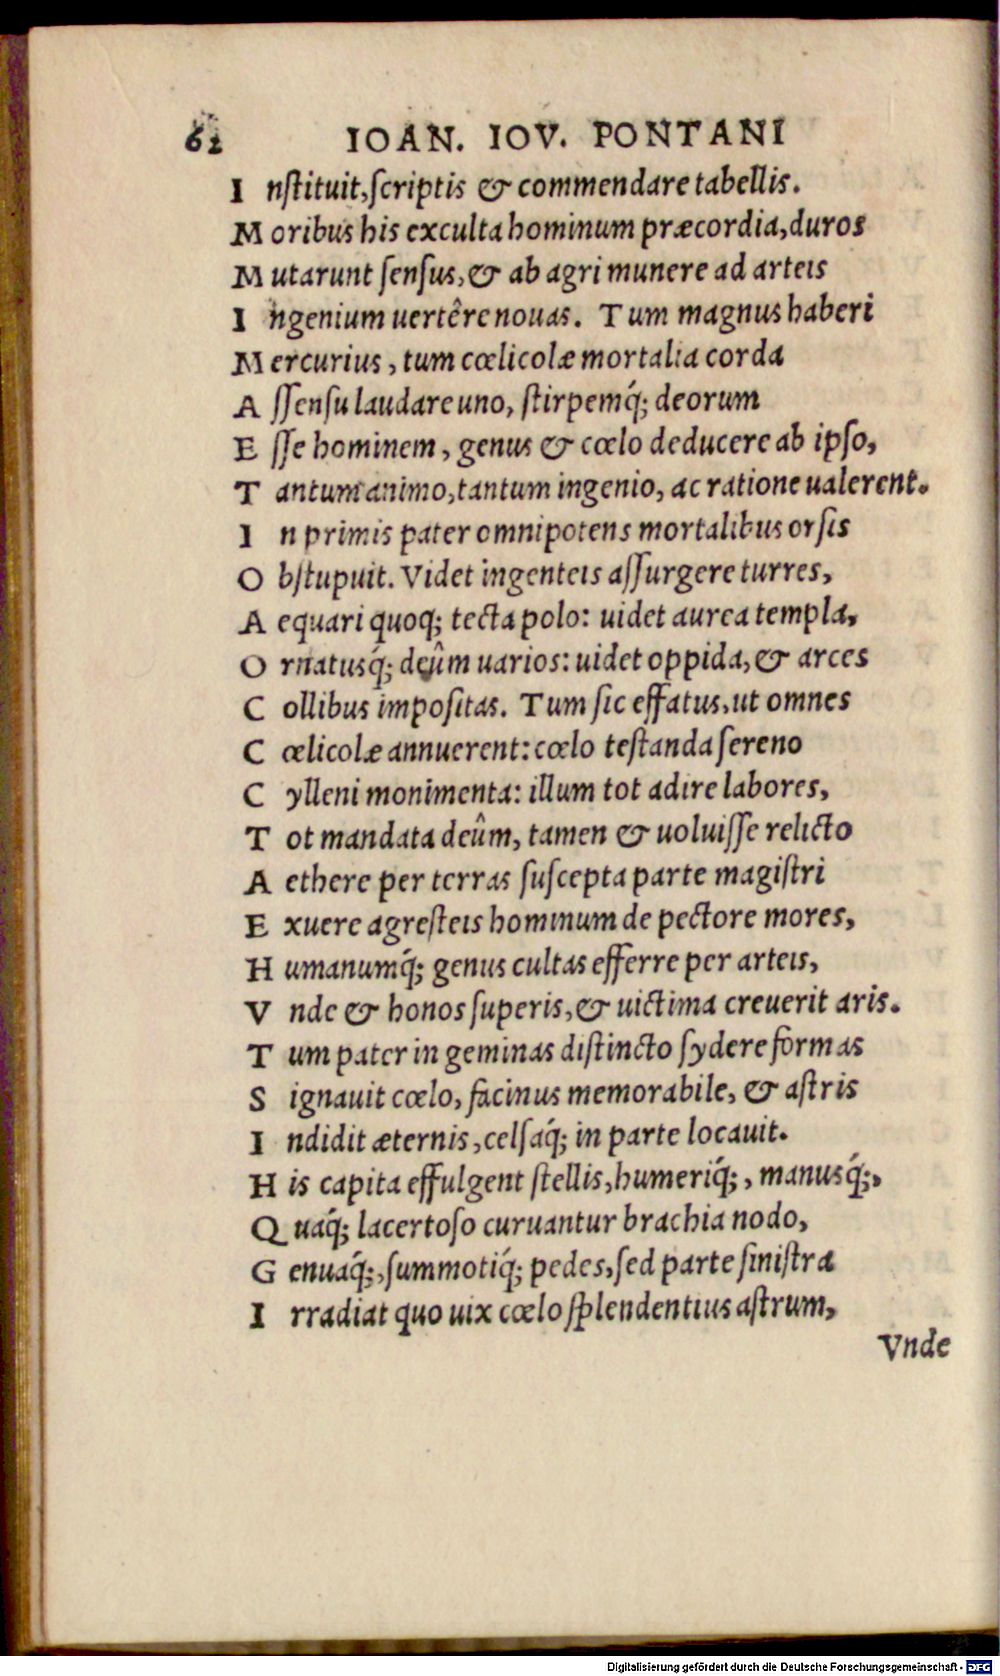 62 IOAN. IOV. PONTANI
Instituit, scriptis & commendare tabellis.
Moribus his exculta hominum præcordia, duros
Mutarunt sensus, & ab agri munere ad arteis
Ingenium uertêre nouas. Tum magnus haberi
Mercurius, tum cœlicolæ mortalia corda
Assensu laudare uno, stirpemq́; deorum
Esse hominem, genus & cœlo deducere ab ipso,
Tantum animo, tantum ingenio, ac ratione ualerent.
In primis pater omnipotens mortalibus orsis
Obstupuit. Videt ingenteis assurgere turres,
Aequari quoq; tecta polo: uidet aurea templa,
Ornatusq́; deûm uarios: uidet oppida, & arces
Collibus impositas. Tum sic effatus, ut omnes
Cœlicolæ annuerent: cœlo testanda sereno
Cylleni monimenta: illum tot adire labores,
Tot mandata deûm, tamen & uoluisse relicto
Aethere per terras suscepta parte magistri
Exuere agresteis hominum de pectore mores,
Humanumq́; genus cultas efferre per arteis,
Vnde & honos superis, & uictima creuerit aris.
Tum pater in geminas distincto sydere formas
Signauit cœlo, facinus memorabile, & astris
Indidit æternis, celsaq́; in parte locauit.
His capita effulgent stellis, humeriq́;, manusq́;,
Quaq́; lacertoso curuantur brachia nodo,
Genuaq́;, summotiq́; pedes, sed parte sinistra
Irradiat quo uix cœlo splendentius astrum,
Vnde
Digitalisierung gefördert durch die Deutsche Forschungsgemeinschaft - DFG